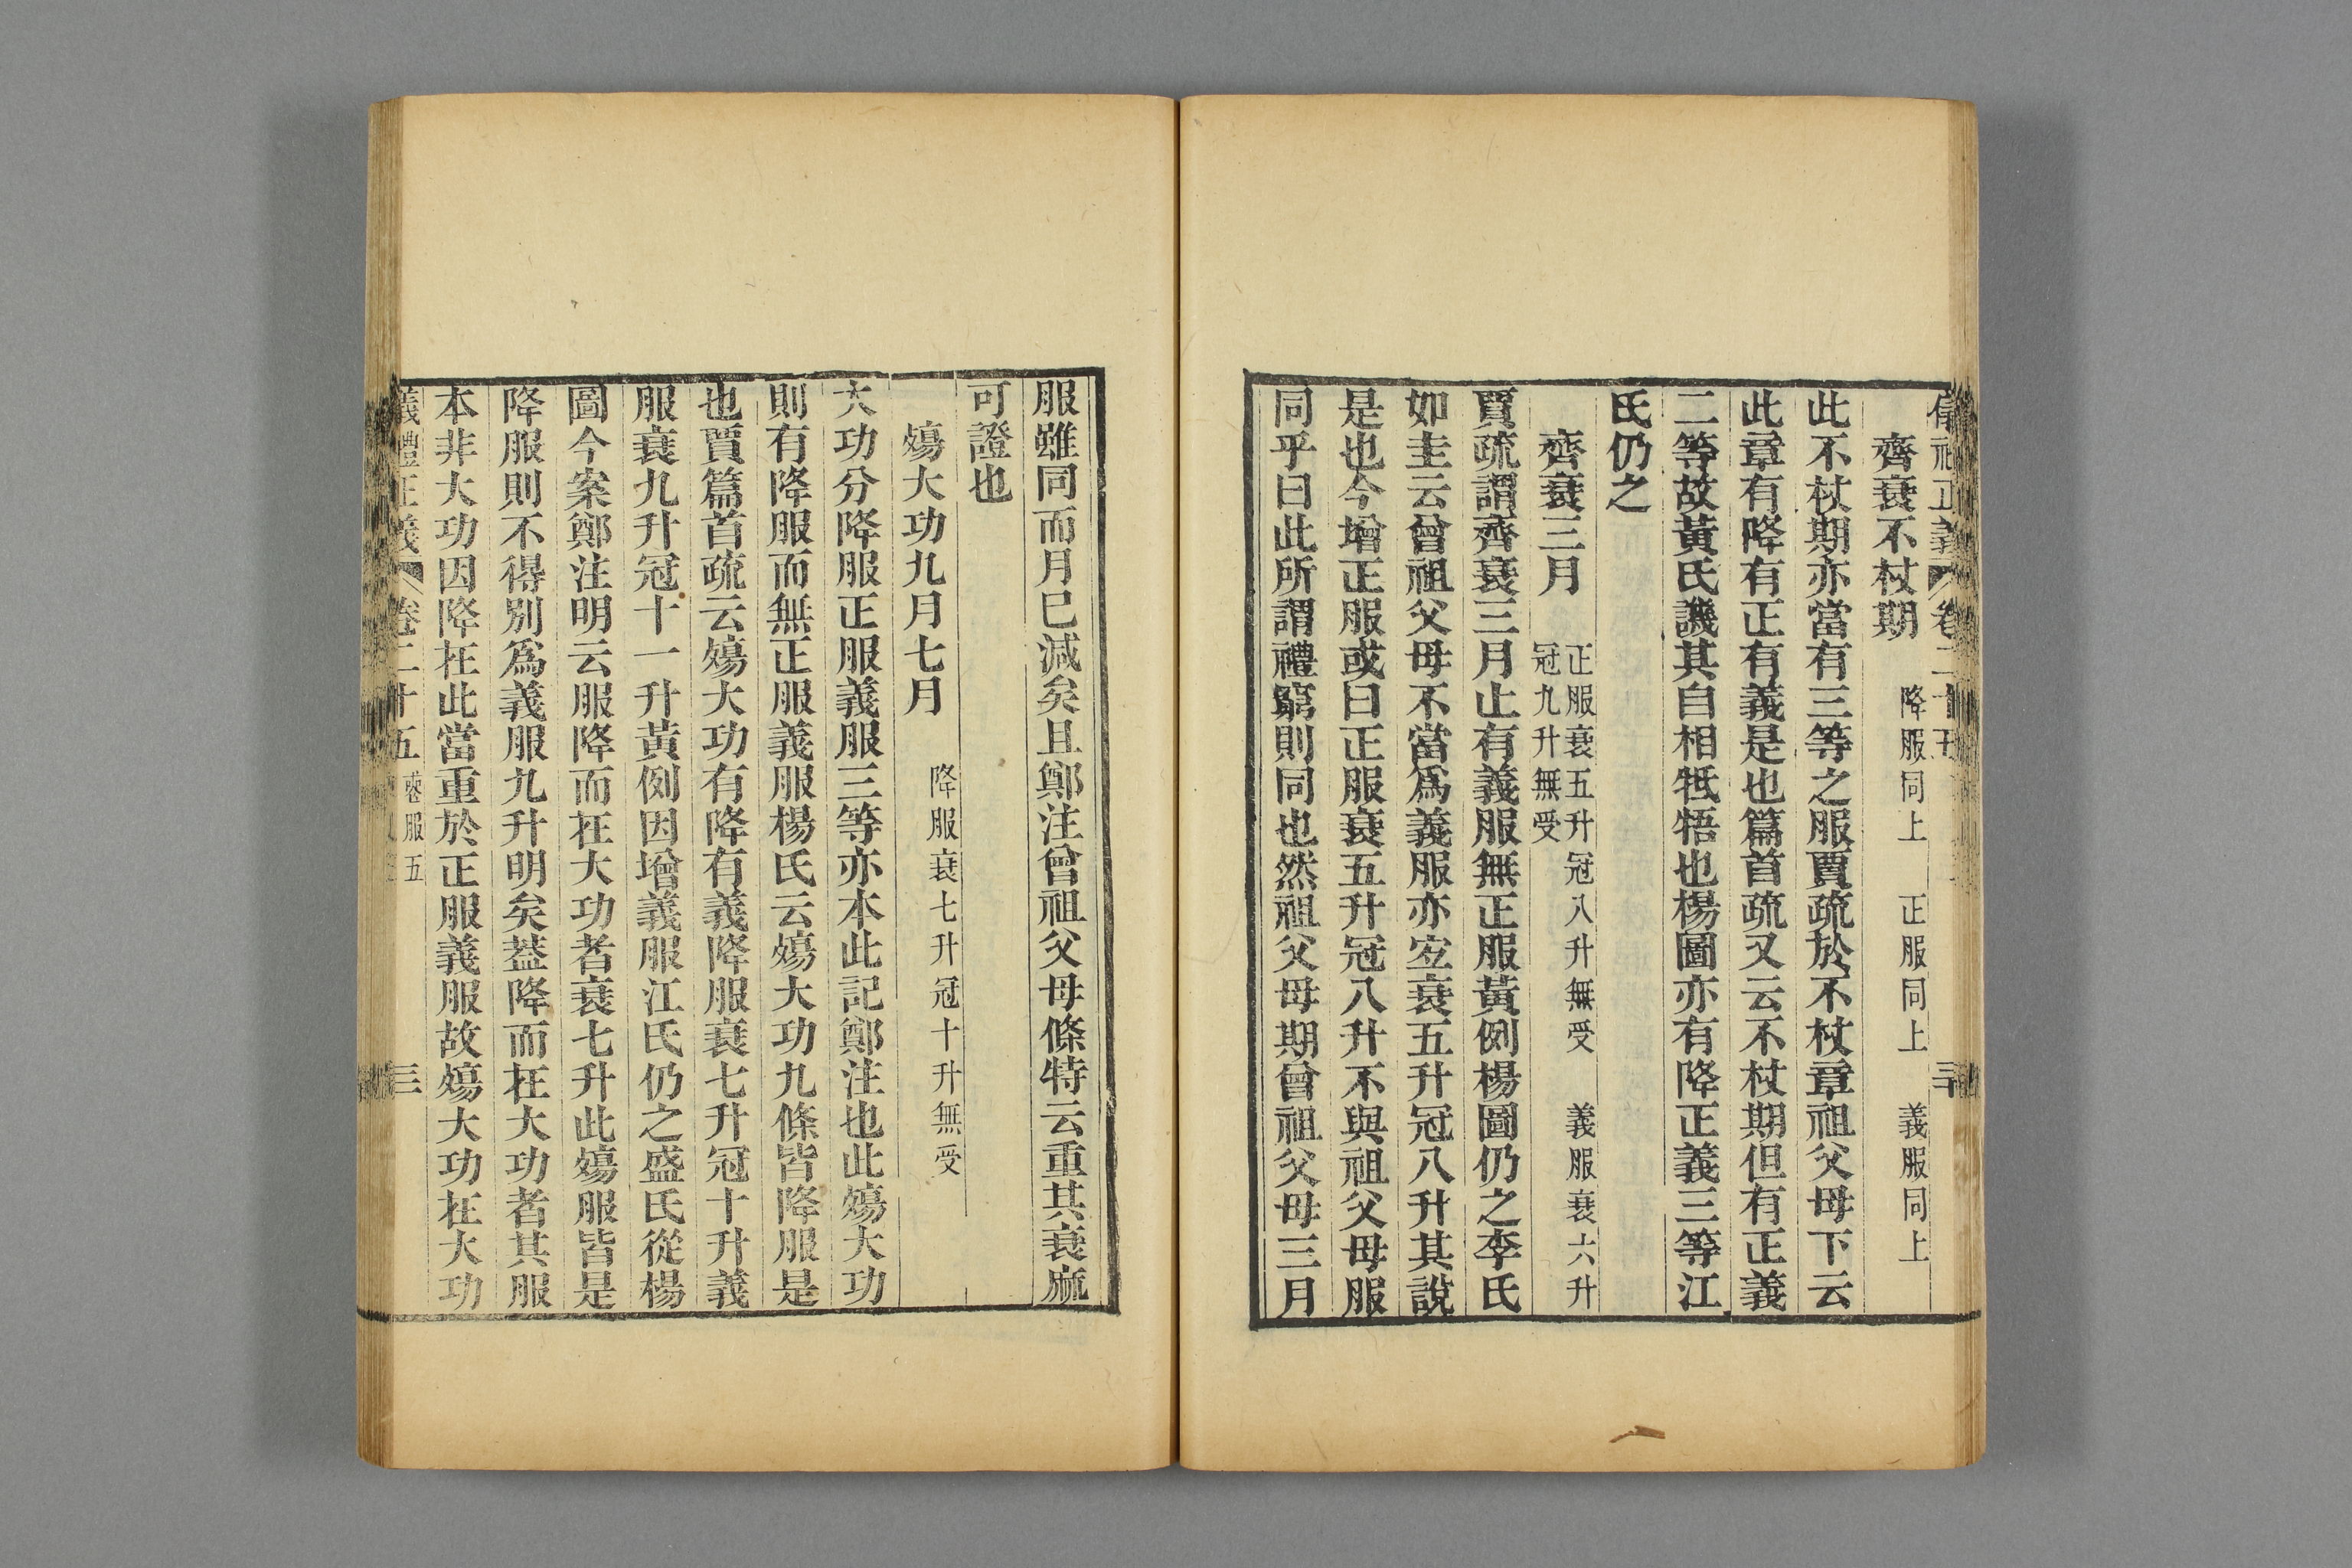 齊衰不杖期　降服同上　正服同上　義服同上
此不杖期亦當有三等之服賈疏於不杖章祖父母下云
此章有降有正有義是也篇首疏又云不杖期但有正義
二等故黃氏譏其自相牴牾也楊圖亦有降正義三等江
氏仍之
齊衰三月　正服衰五升冠八升無受　義服衰六升
冠九升無受
賈疏謂齊衰三月止有義服無正服黃例楊圖仍之李氏
如圭云曾祖父母不當爲義服亦宐衰五升冠八升其說
是也今增正服或曰正服衰五升冠八升不與祖父母服
同乎曰此所謂禮窮則同也然祖父母期曾祖父母三月
服雖同而月已減矣且鄭注曾祖父母條特云重其衰麻
可證也
殤大功九月七月　降服衰七升冠十升無受
大功分降服正服義服三等亦本此記鄭注也此殤大功
則有降服而無正服義服楊氏云殤大功九條皆降服是
也賈篇首疏云殤大功有降有義降服衰七升冠十升義
服衰九升冠十一升黃例因增義服江氏仍之盛氏從楊
圖今案鄭注明云服降而在大功者衰七升此殤服皆是
降服則不得別爲義服九升明矣葢降而在大功者其服
本非大功因降在此當重於正服義服故殤大功在大功
儀禮正義　卷二十五　喪服五